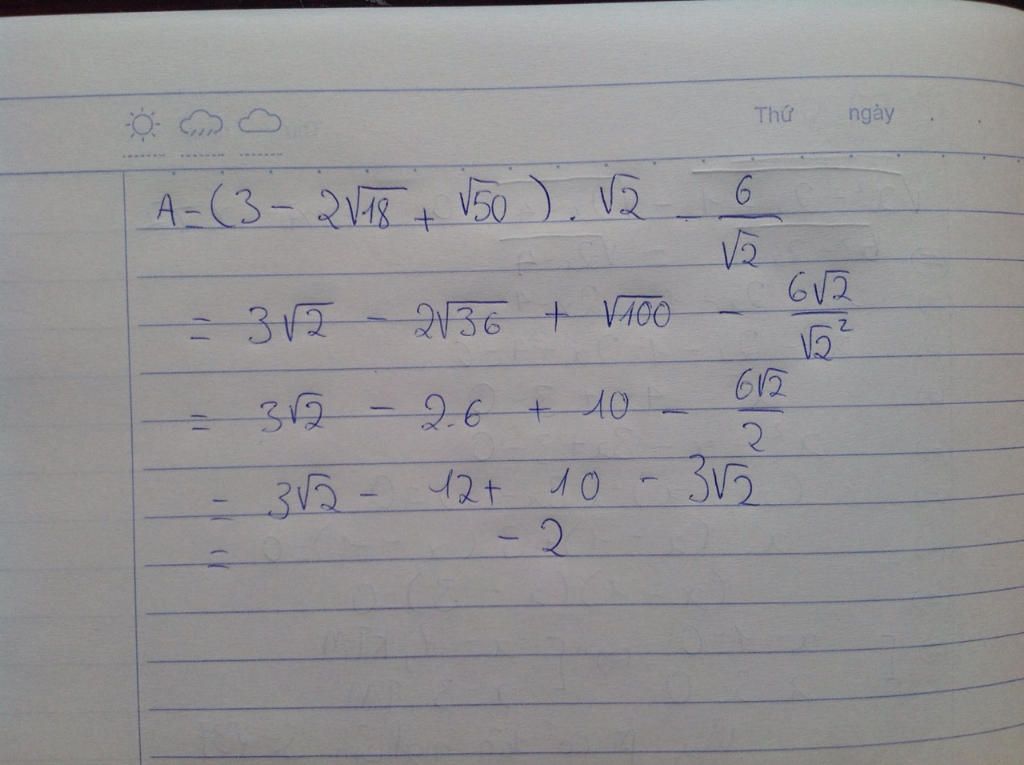 Thứ ngày
A = (3 - 2√18 + √50) . √2 - 6/√2
= 3√2 - 2√36 + √100 - 6√2/√2²
= 3√2 - 2.6 + 10 - 6√2/2
= 3√2 - 12 + 10 - 3√2
= - 2